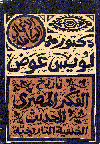 دكتور
لويس عوض
تاريخ
الفكر المصرى
الحديث
الخلفية التاريخية